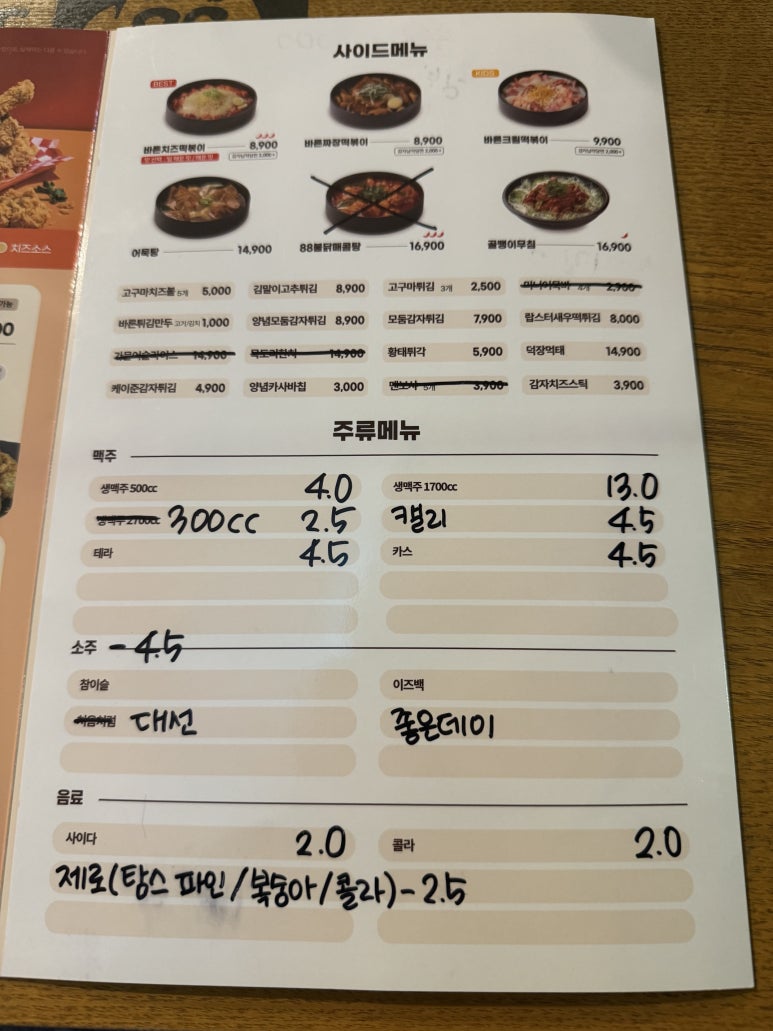 사이드메뉴
BEST
KIDS
바른치즈떡볶이 8,900
바른짜장떡볶이 8,900
바른크림떡볶이 9,900
어묵탕 14,900
88불닭매콤탕 16,900
골뱅이무침 16,900
고구마치즈볼 5개 5,000
김말이고추튀김 8,900
고구마튀김 3개 2,500
4개 2,900
바른튀김만두 고기/김치 1,000
양념모둠감자튀김 8,900
모둠감자튀김 7,900
랍스터새우떡튀김 8,000
14,900
14,900
황태튀각 5,900
덕장먹태 14,900
케이준감자튀김 4,900
양념카사바칩 3,000
멘보샤 5개 3,900
감자치즈스틱 3,900
주류메뉴
맥주
생맥주 500cc 4.0
생맥주 1700cc 13.0
생맥주 2700cc 300cc 2.5
캘리 4.5
테라 4.5
카스 4.5
소주 - 4.5
참이슬
이즈백
처음처럼 대선
좋은데이
음료
사이다 2.0
콜라 2.0
제로(탐스 파인/복숭아/콜라) - 2.5
치즈소스